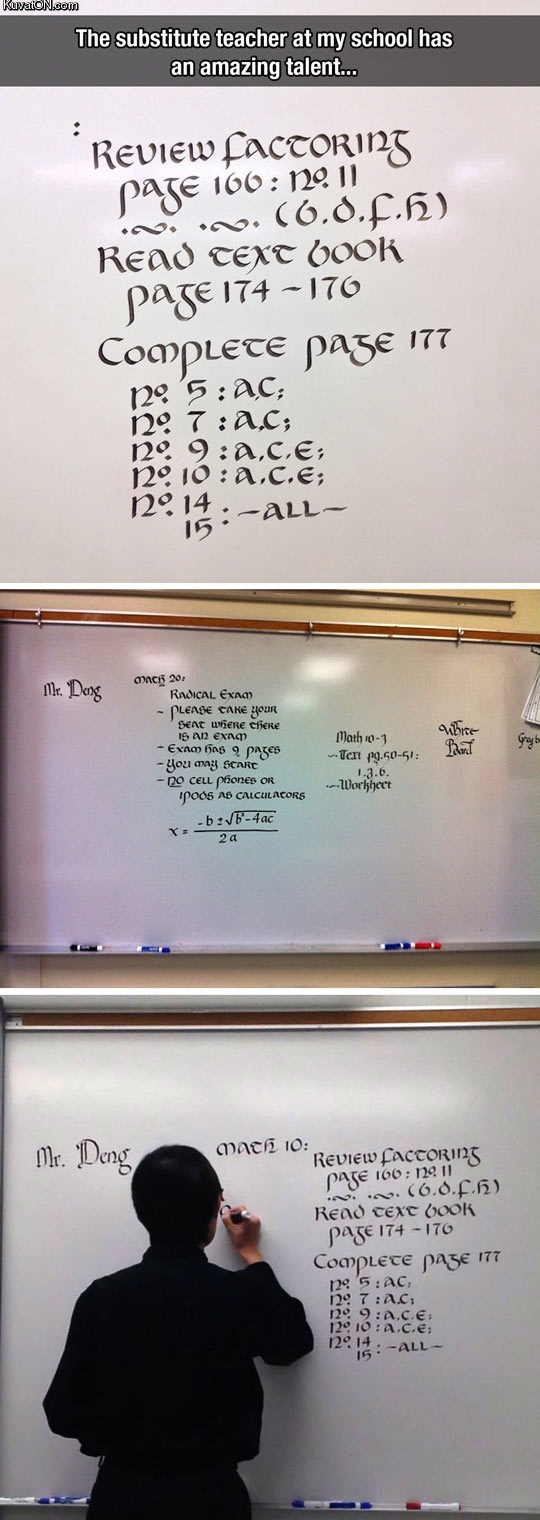 KuvatON.com
The substitute teacher at my school has
an amazing talent...
:
Review factoring
page 166: no. 11
.~. .~. (b.d.f.h)
Read text book
page 174 - 176
Complete page 177
no. 5 : a,c;
no. 7 : a,c;
no. 9 : a.c.e;
no. 10 : a.c.e;
no. 14
15 : -all-
Mr. Deng
math 20:
Radical Exam
~ Please take your
seat where there
is an exam
- Exam has 9 pages
- You may start
- no cell phones or
ipods as calculators
x = -b ± √b²-4ac
2a
Math 10-3
~ Text pg.50-51:
1.3.6.
~ Workheet
White
Board
Mr. Deng
math 10:
Review factoring
page 166: no. 11
.~. .~. (b.d.f.h)
Read text book
page 174 - 176
Complete page 177
no. 5 : a.c;
no. 7 : a.c;
no. 9 : a.c.e;
no. 10 : a.c.e;
no. 14
15 : -all-